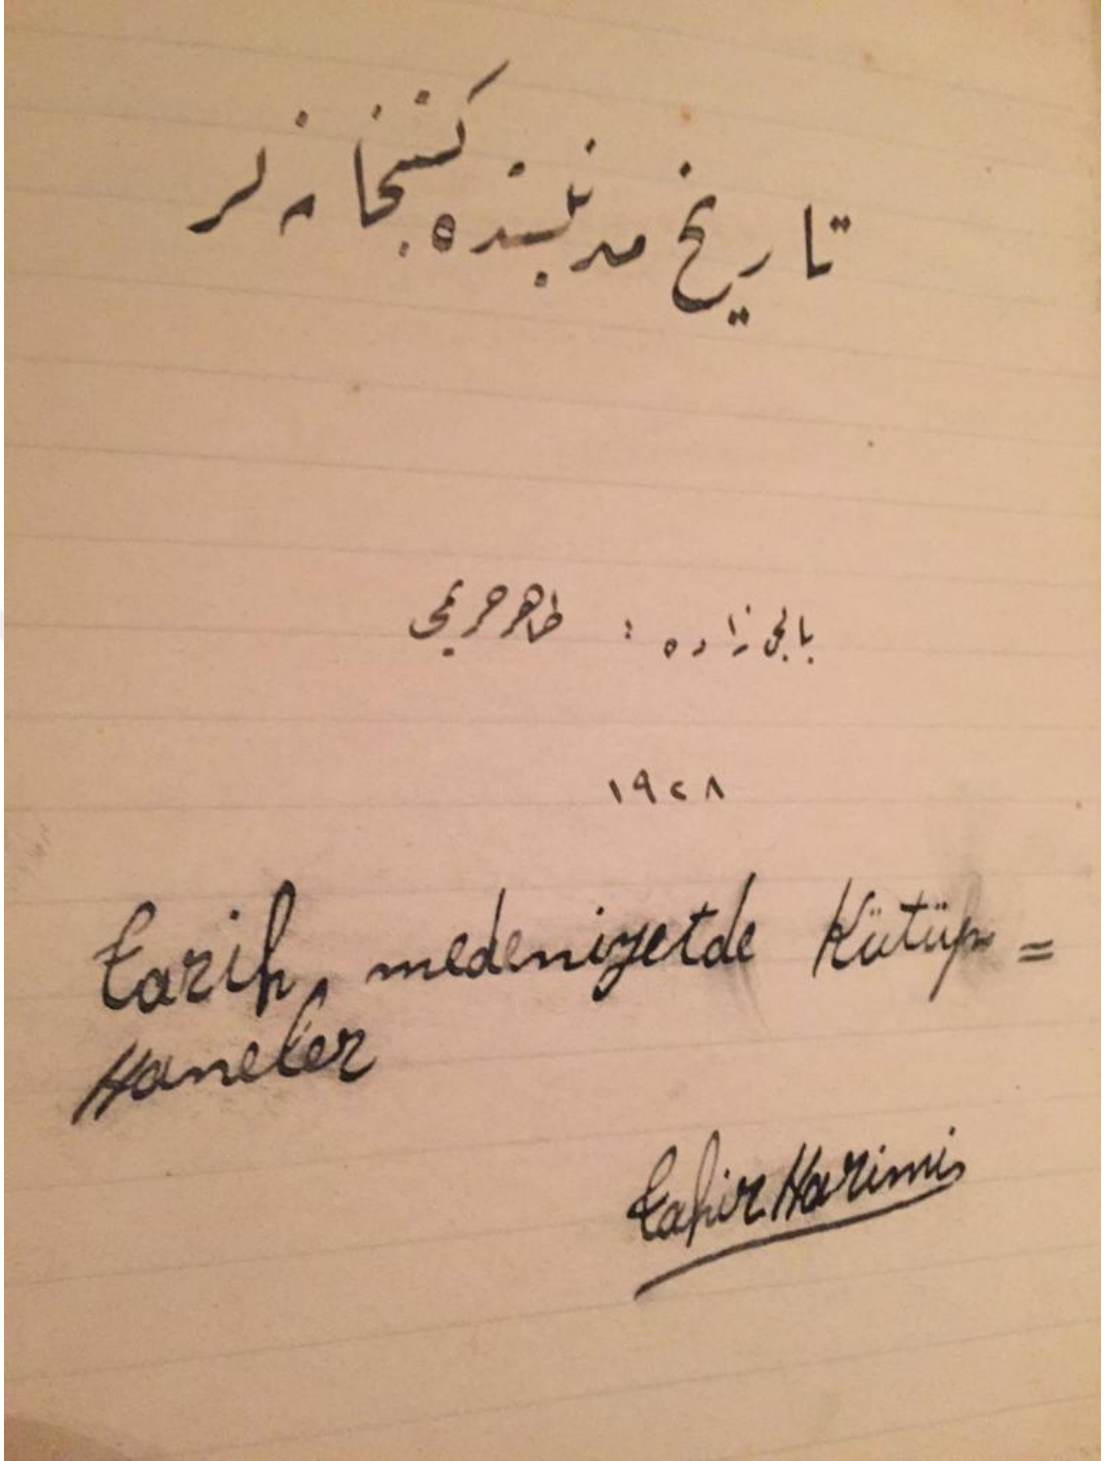 تاريخ مدنيتده كتبخانه لر
بالجى زاده : طاهر حريمى
١٩٢٨
tarih, medeniyetde Kütüp=
Haneler
tahir Harimi